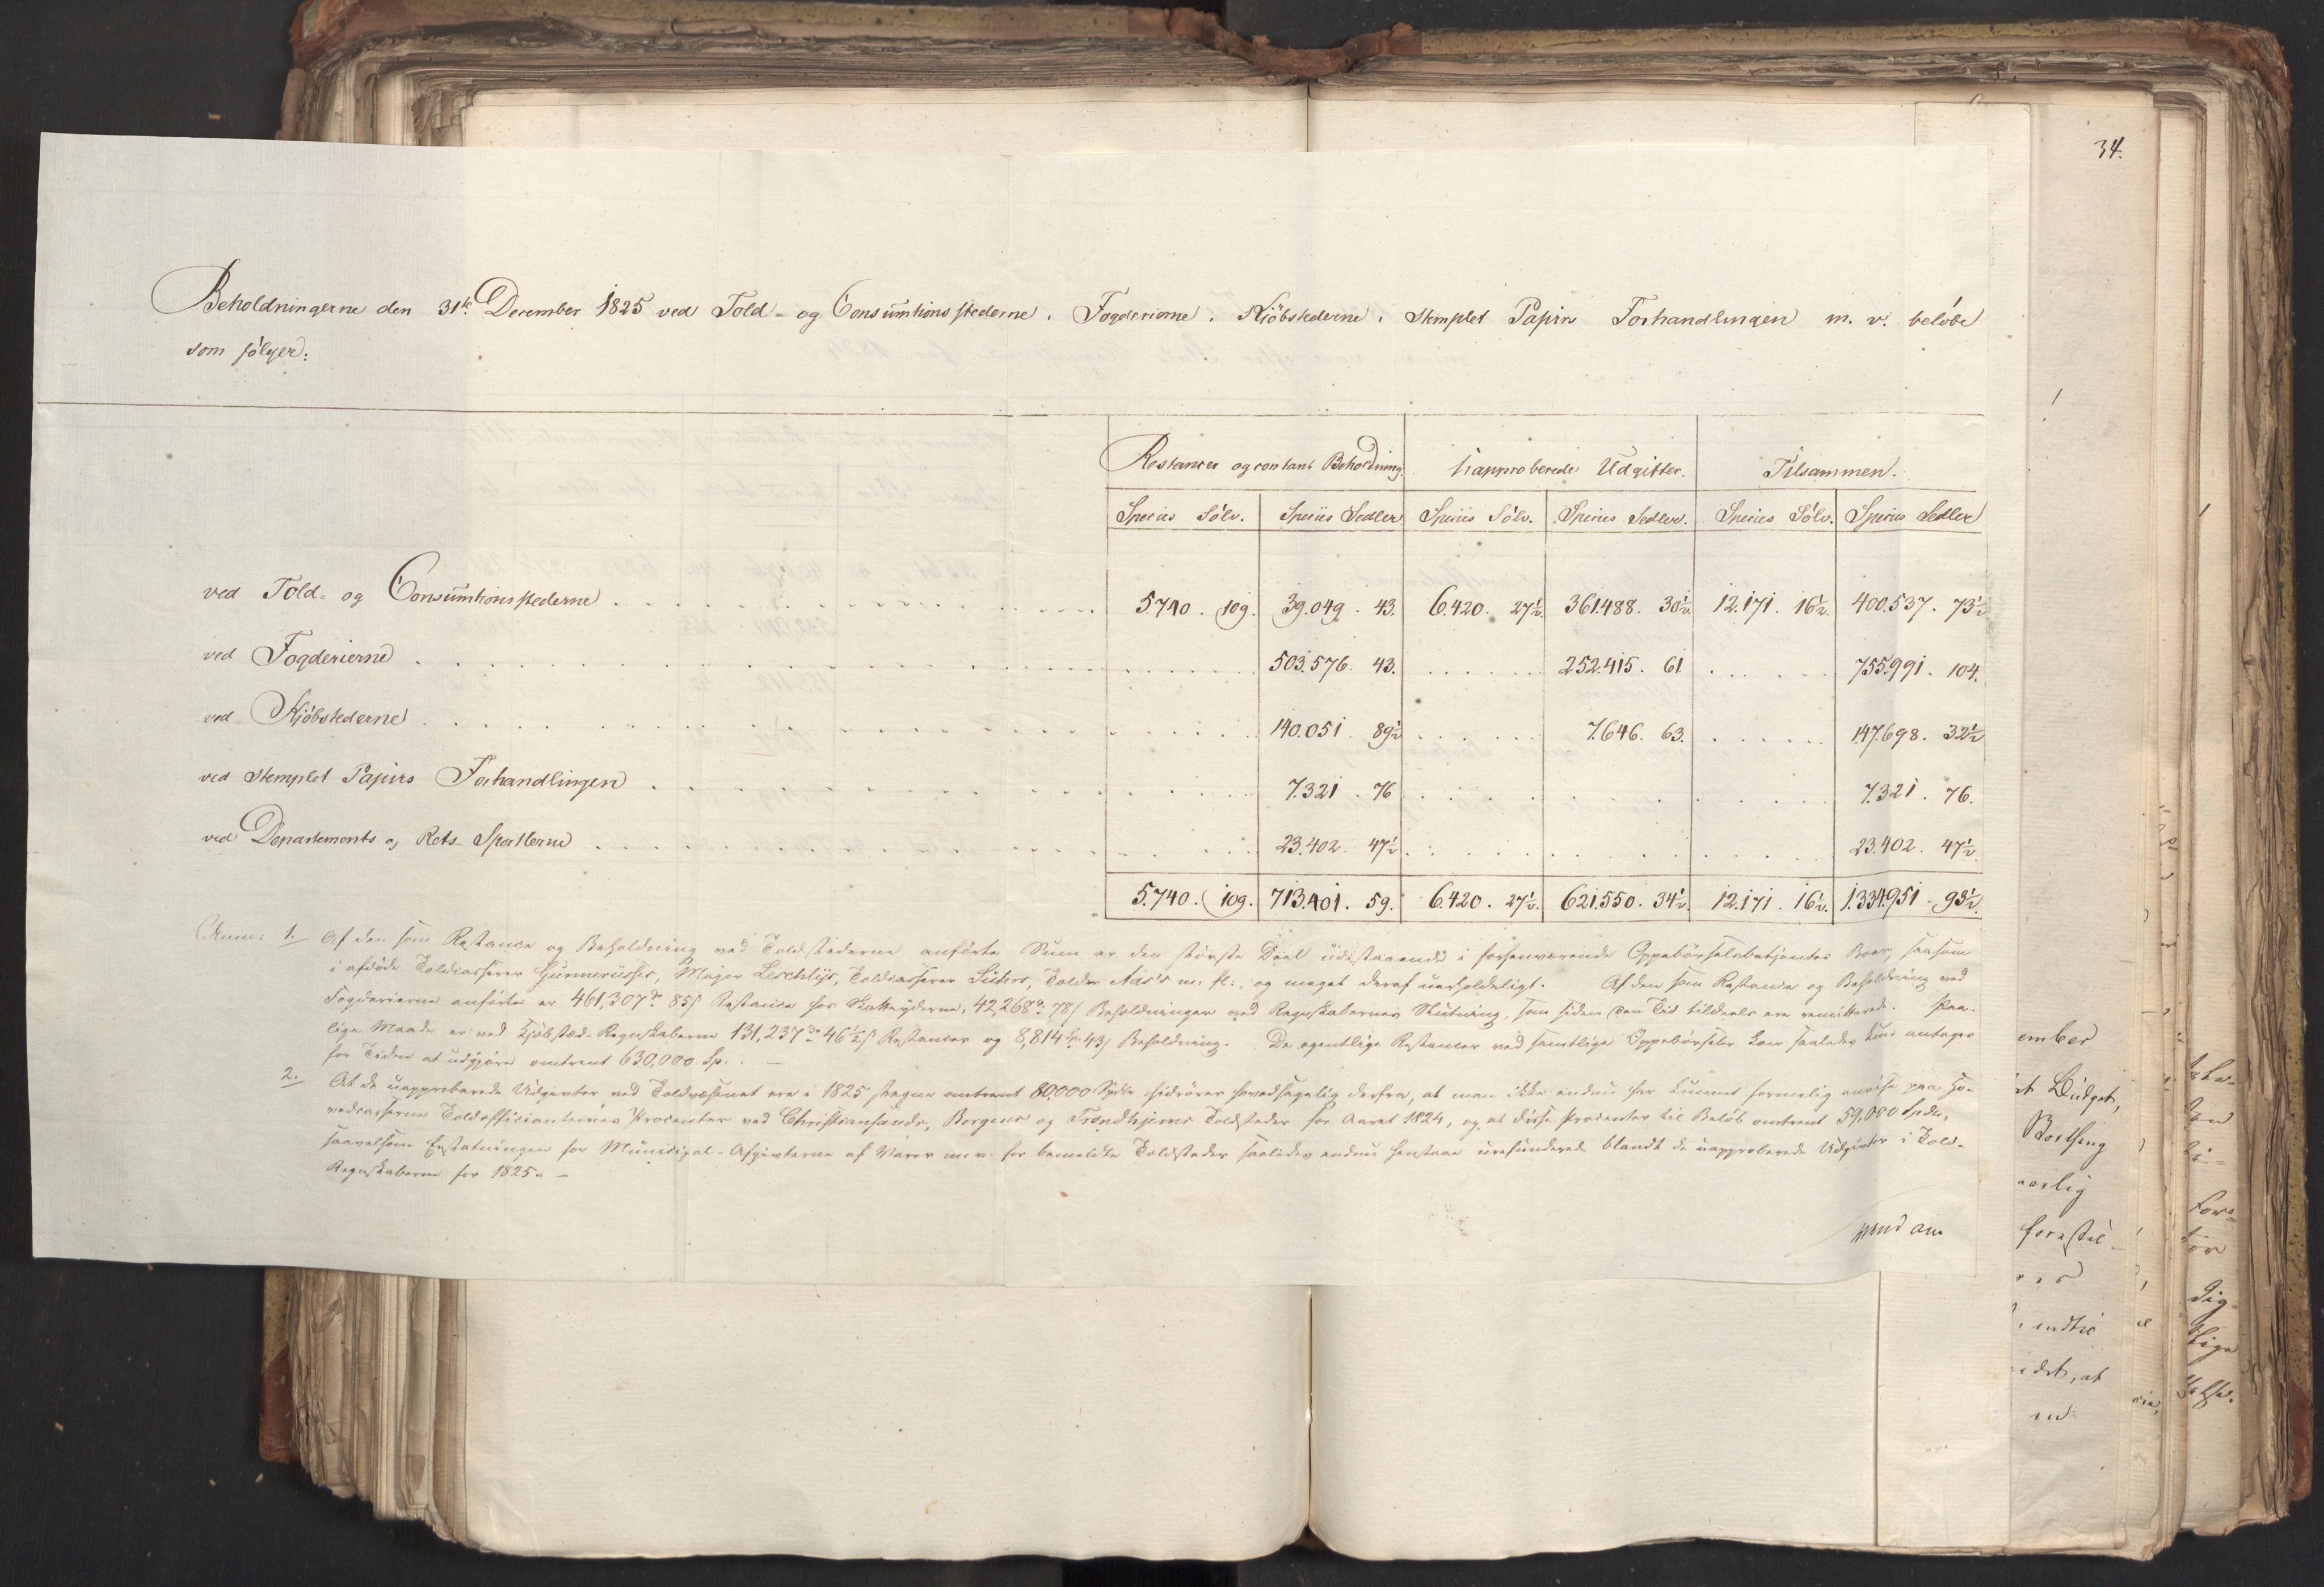 34.
Beholdningerne den 31te December 1825 ved Told- og Consumtionsstederne, Fogderierne, Kjöbstederne, Stemplet Papirs Forhandlingen m. v. belöbe
som fölger:
Restancer og contant Beholdning. Uapproberede Udgifter. Tilsammen.
Species Sölv. Species Sedler Species Sölv. Species Sedler. Species Sölv. Species Sedler
ved Told- og Consumtionsstederne 5740. 109. 39.049. 43. 6.420. 27½. 361.488. 30½. 12.171. 16½. 400.537. 73½
ved Fogderierne 503.576. 43. 252.415. 61 755.991. 104.
ved Kjöbstederne 140.051. 89½ 7.646. 63. 147.698. 32½
ved Stemplet Papirs Forhandlingen 7.321. 76 7.321. 76.
ved Departements og Rets-Sportlerne 23.402. 47½ 23.402. 47½.
5.740. 109. 713.401. 59. 6.420. 27½. 621.550. 34½. 12.171. 16½. 1.334.951. 93½.
Anm: 1. Af den som Restance og Beholdning ved Toldstederne anförte Sum er den störste Deel udestaaende i forhenværende Oppebörselsbetjentes Boer, saasom
i afdöde Toldcasserer Gunnerusses, Major Leschlys, Toldcasserer Tolder Aas's m. fl., og meget deraf uerholdeligt. Af den som Restance og Beholdning ved
Fogderierne anförte er 461,307 do 85 s Restance hos Skatteyderne, 42,268 do 78 s Beholdninger ved Regnskabernes Slutning, som siden den Tid tildeels ere remitterede. Paa
lige Maade er ved Kjöbsted-Regnskaberne 131,237 do 46½ s Restancer og 8,814 Sp. 43 s Beholdning. De egentlige Restancer ved samtlige Oppebörseler kan saaledes kun antages
for Tiden at udgjöre omtrent 630,000 Sp. —
2. At de uapproberede Udgivter ved Toldvæsenet ere i 1825 stegne omtrent 80,000 Spdlr hidrörer hovedsagelig derfra, at man ikke endnu har kunnet formelig anvise paa Ho-
vedcasserne Toldofficianternes Procenter ved Christiansands, Bergens og Trondhjems Toldsteder for Aaret 1824, og at disse Procenter til Belöb omtrent 59,000 Spdlr,
saavelsom Erstatningen for Municipal-Afgivterne af Varer m. v. for bemeldte Toldsteder saaledes endnu henstaae urefunderede blandt de uapproberede Udgivter i Told-
Regnskaberne for 1825. —
vend om
ember
Budget,
Storthing
forestil-